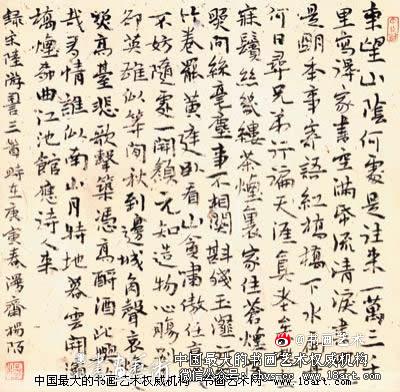 東望山陰何處是往來一萬三
里寫得家書空滿紙流清淚
是明年事寄語紅橋橋下水扁
何日尋兄弟行遍天涯真老矣
寐鬢絲幾縷茶煙裏家住蒼煙
照間絲毫塵事不相關斟殘玉瀣
竹卷罷黃庭卧看山貪嘯傲任衰
不妨隨處一開顏元知造物
卻英雄似等閒秋到邊城角聲哀
火照高臺悲歌擊筑憑高酹酒此興
哉多情誰似南山月特地暮雲開
灞橋煙柳曲江池館應待人來
錄宋陸游詞三首時在庚寅春
@书画艺术
国中最大的书画艺术权威机构
国中最大的书画艺术权威机构--书画艺术网--www.18art.com